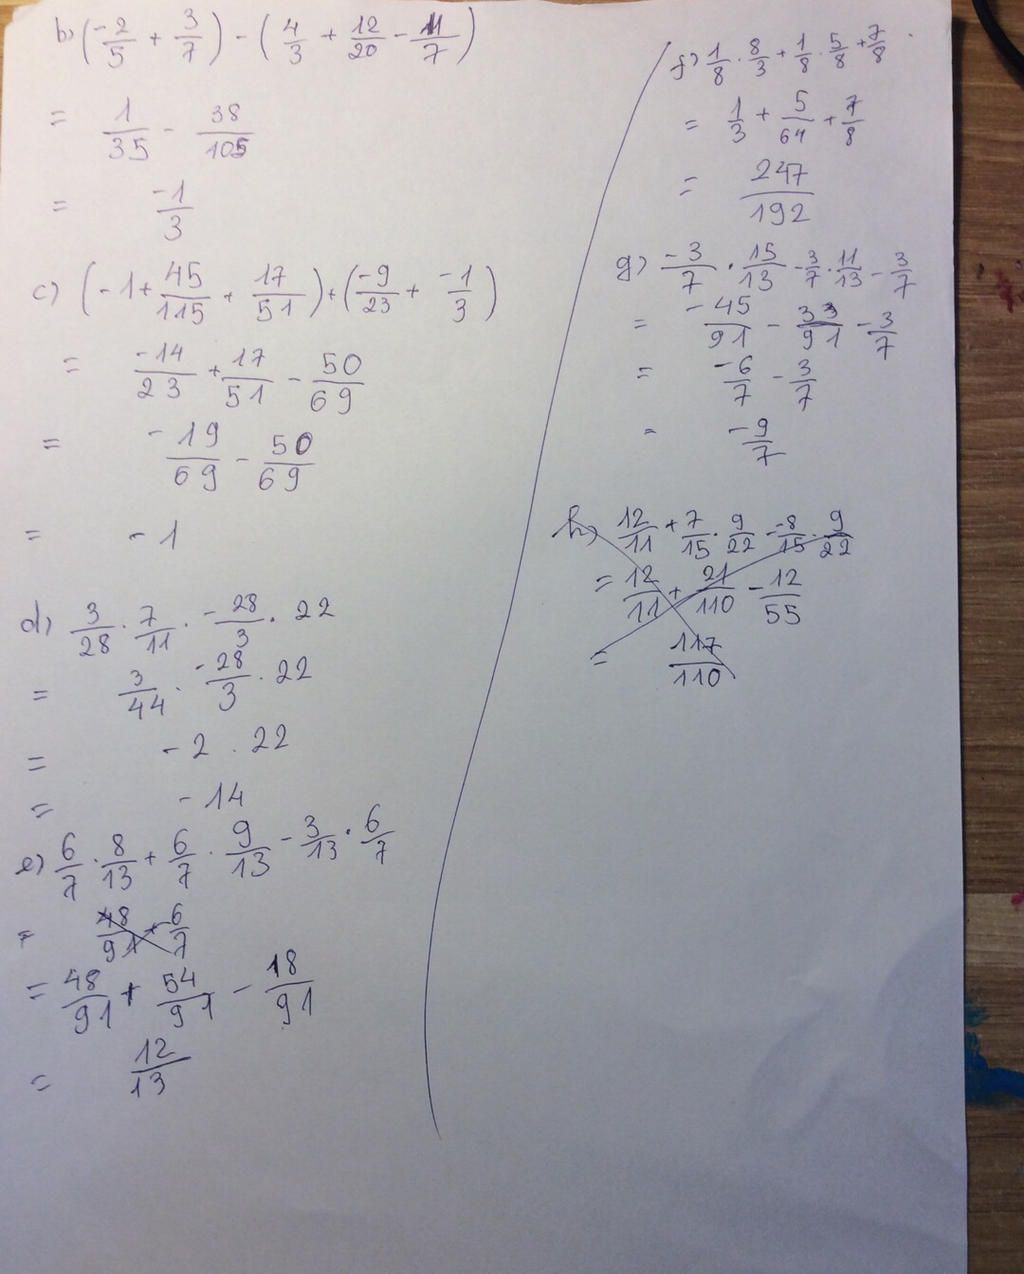 b) (-2/5 + 3/7) - (4/3 + 12/20 - 11/7)
= 1/35 - 38/105
= -1/3
c) (-1 + 45/115 + 17/51) + (-9/23 + -1/3)
= -14/23 + 17/51 - 50/69
= -19/69 - 50/69
= -1
d) 3/28 . 7/11 . -28/3 . 22
= 3/44 . -28/3 . 22
= -2 . 22
= -14
e) 6/7 . 8/13 + 6/7 . 9/13 - 3/13 . 6/7
= 48/91 + 6/7
= 48/91 + 54/91 - 18/91
= 12/13
f) 1/8 . 8/3 + 1/8 . 5/8 + 7/8
= 1/3 + 5/64 + 7/8
= 247/192
g) -3/7 . 15/13 - 3/7 . 11/13 - 3/7
= -45/91 - 33/91 - 3/7
= -6/7 - 3/7
= -9/7
h) 12/11 + 7/15 . 9/22 - -8/15 . 9/22
= 12/11 + 21/110 - 12/55
= 117/110